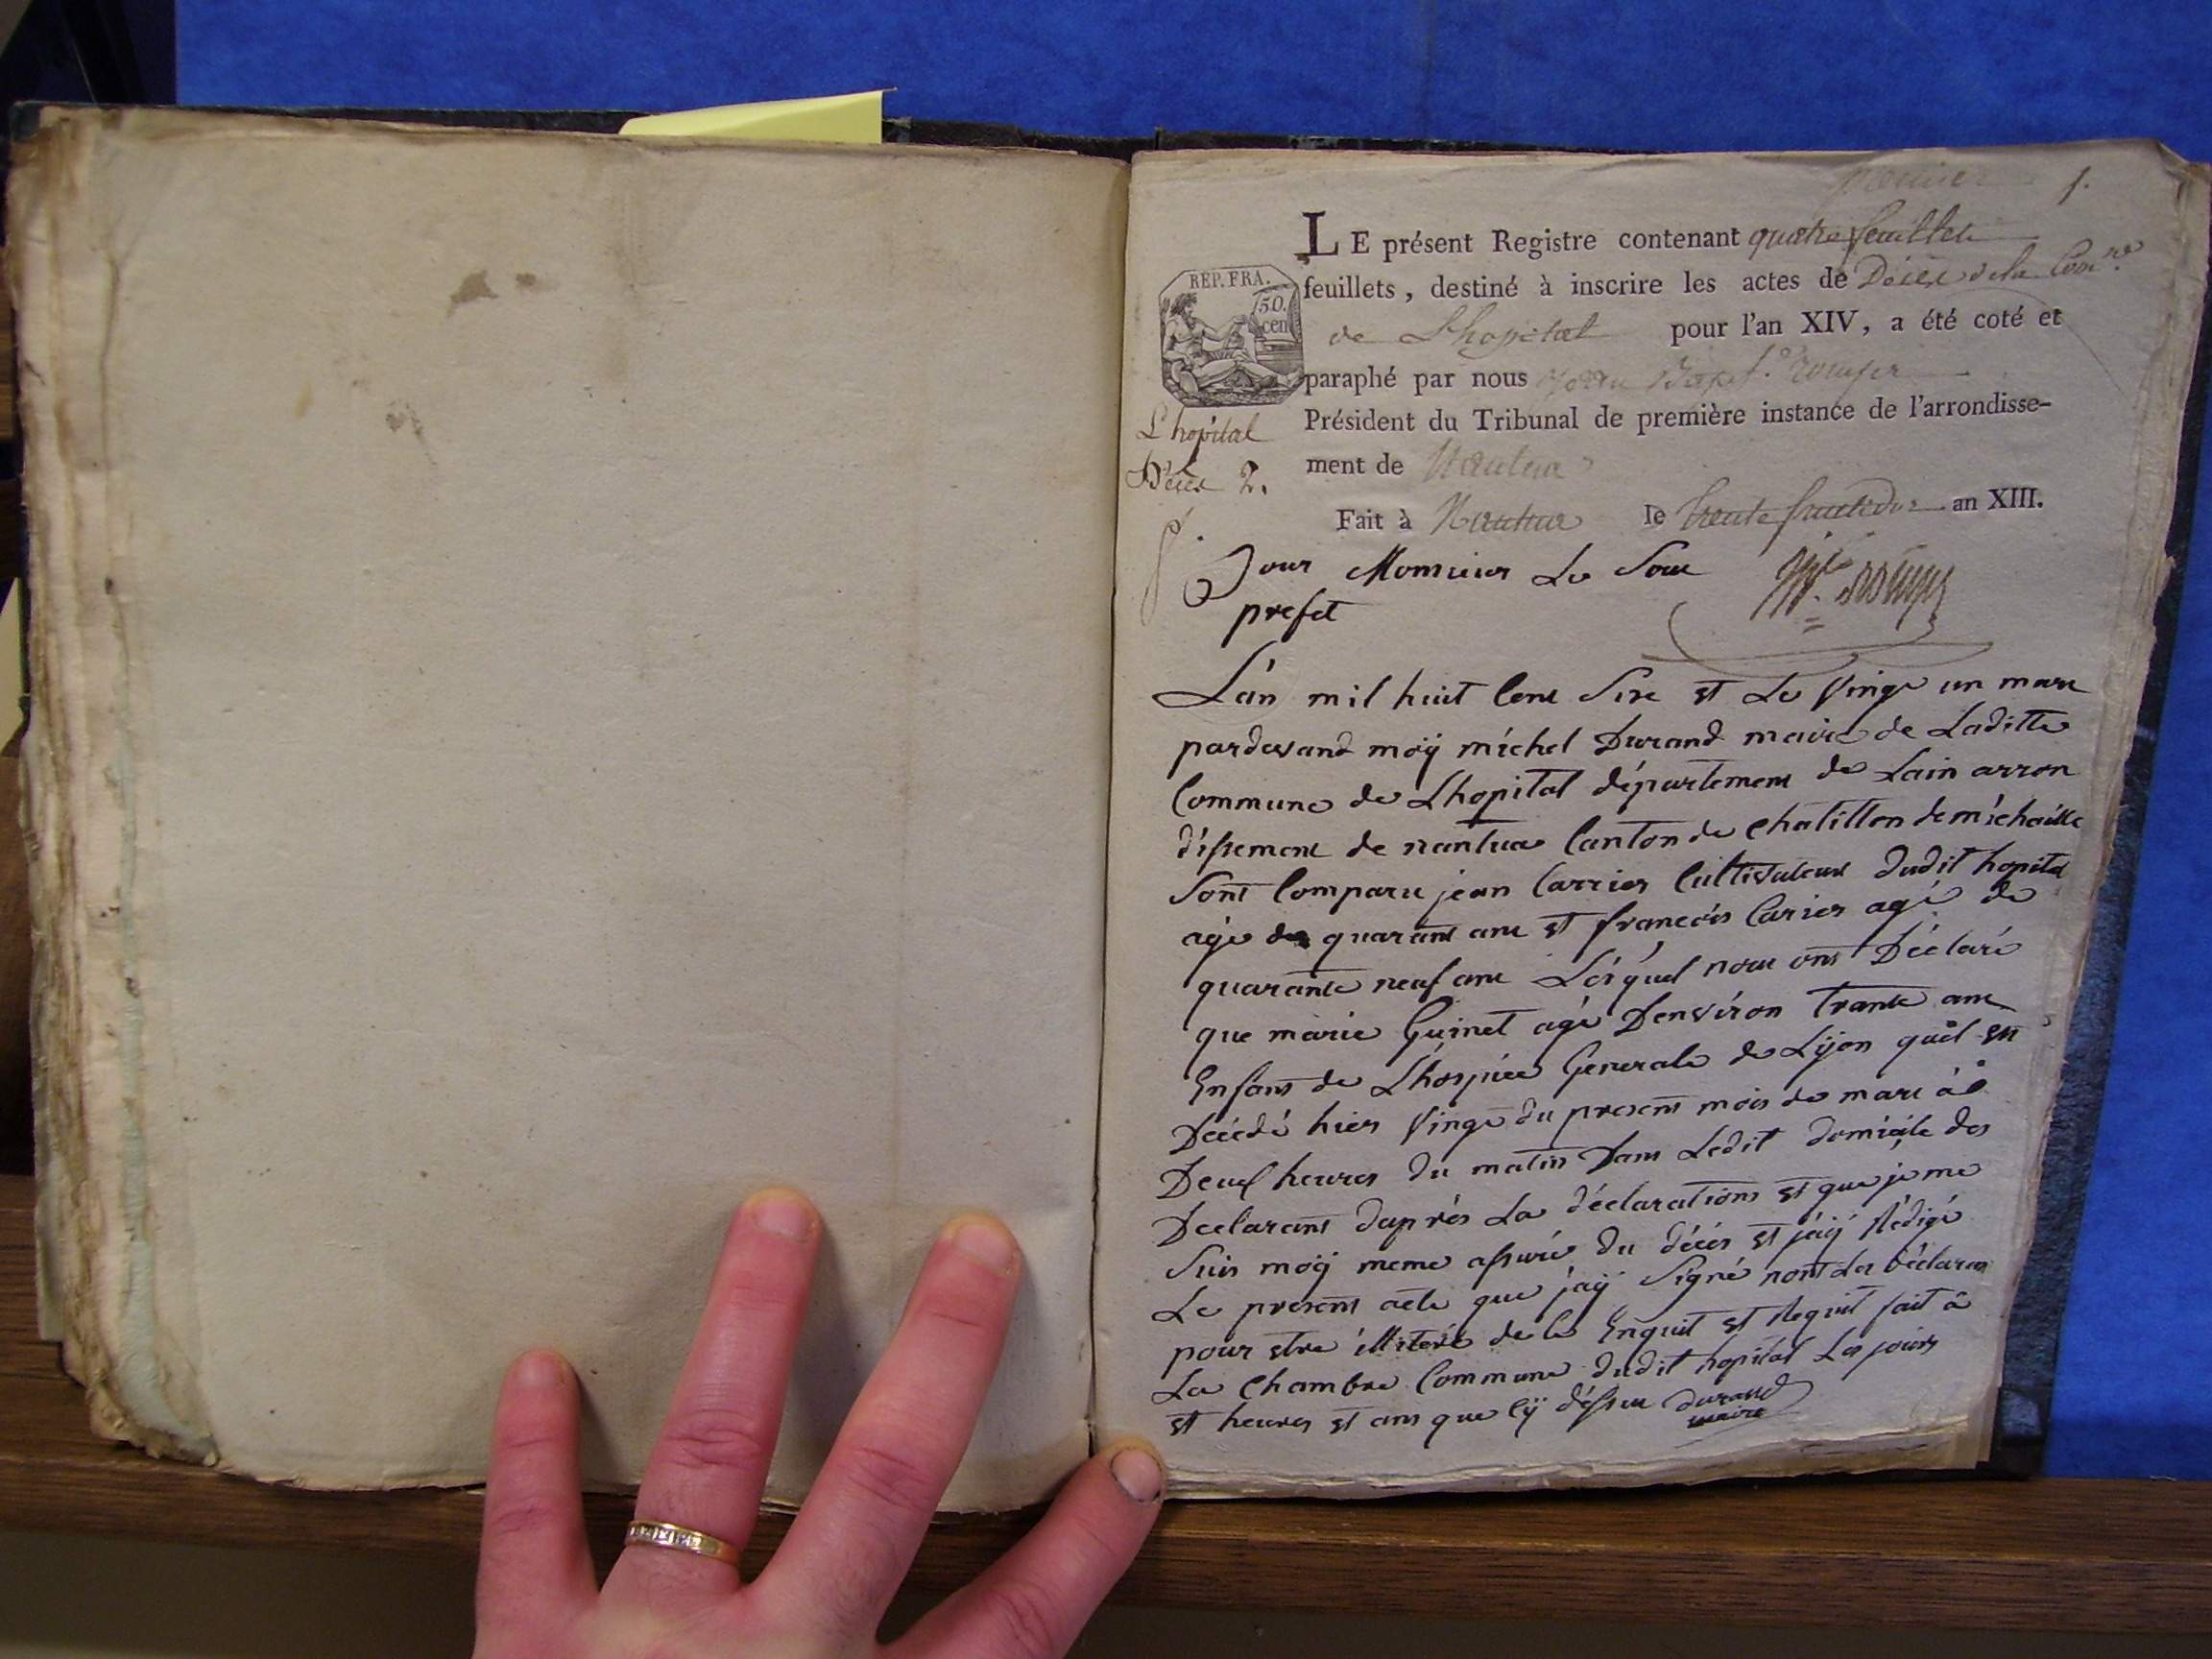 1.
LE présent Registre contenant quatre feuillets
feuillets, destiné à inscrire les actes de Décès de la Com.ne
de Lhopital pour l'an XIV, a été coté et
paraphé par nous Jean Bapt. rouyer
Président du Tribunal de première instance de l'arrondisse-
ment de Nantua
Fait à Nantua le trente fructidor an XIII.
REP. FRA.
50.
cen
L'hopital
Décès 2.
Pour Monsieur Le Sou
prefet
L'an mil huit Cent Sixe et Le Vingt un mars
pardevand moÿ michel Durand maire de Laditte
Commune de Lhopital département de Lain arron
dissement de nantua Canton de Chatillon de michaille
Sont Comparu jean Carrier Cultivateur dudit hopital
agé de quarant ans et francois Carier agé de
quarante neuf ans Lésquel nous ont Déclaré
que marie Guinet agé Denviron trante ans
Enfant de Lhospice Generale de Lÿon quil est
Décédé hier Vingt du present mois de mars à
Deux heures du matin Dans Ledit domicile des
Declarant daprès La déclarations et que je me
Suis moÿ meme assuré du décés et jaÿ Rédigé
Le present acte que jaÿ Signé nont Les Déclaran
pour etre illiteré de ce Enquit et Requit fait à
La Chambre Commune dudit hopital Les jours
et heures et ans que Cÿ déssus Durand
maire